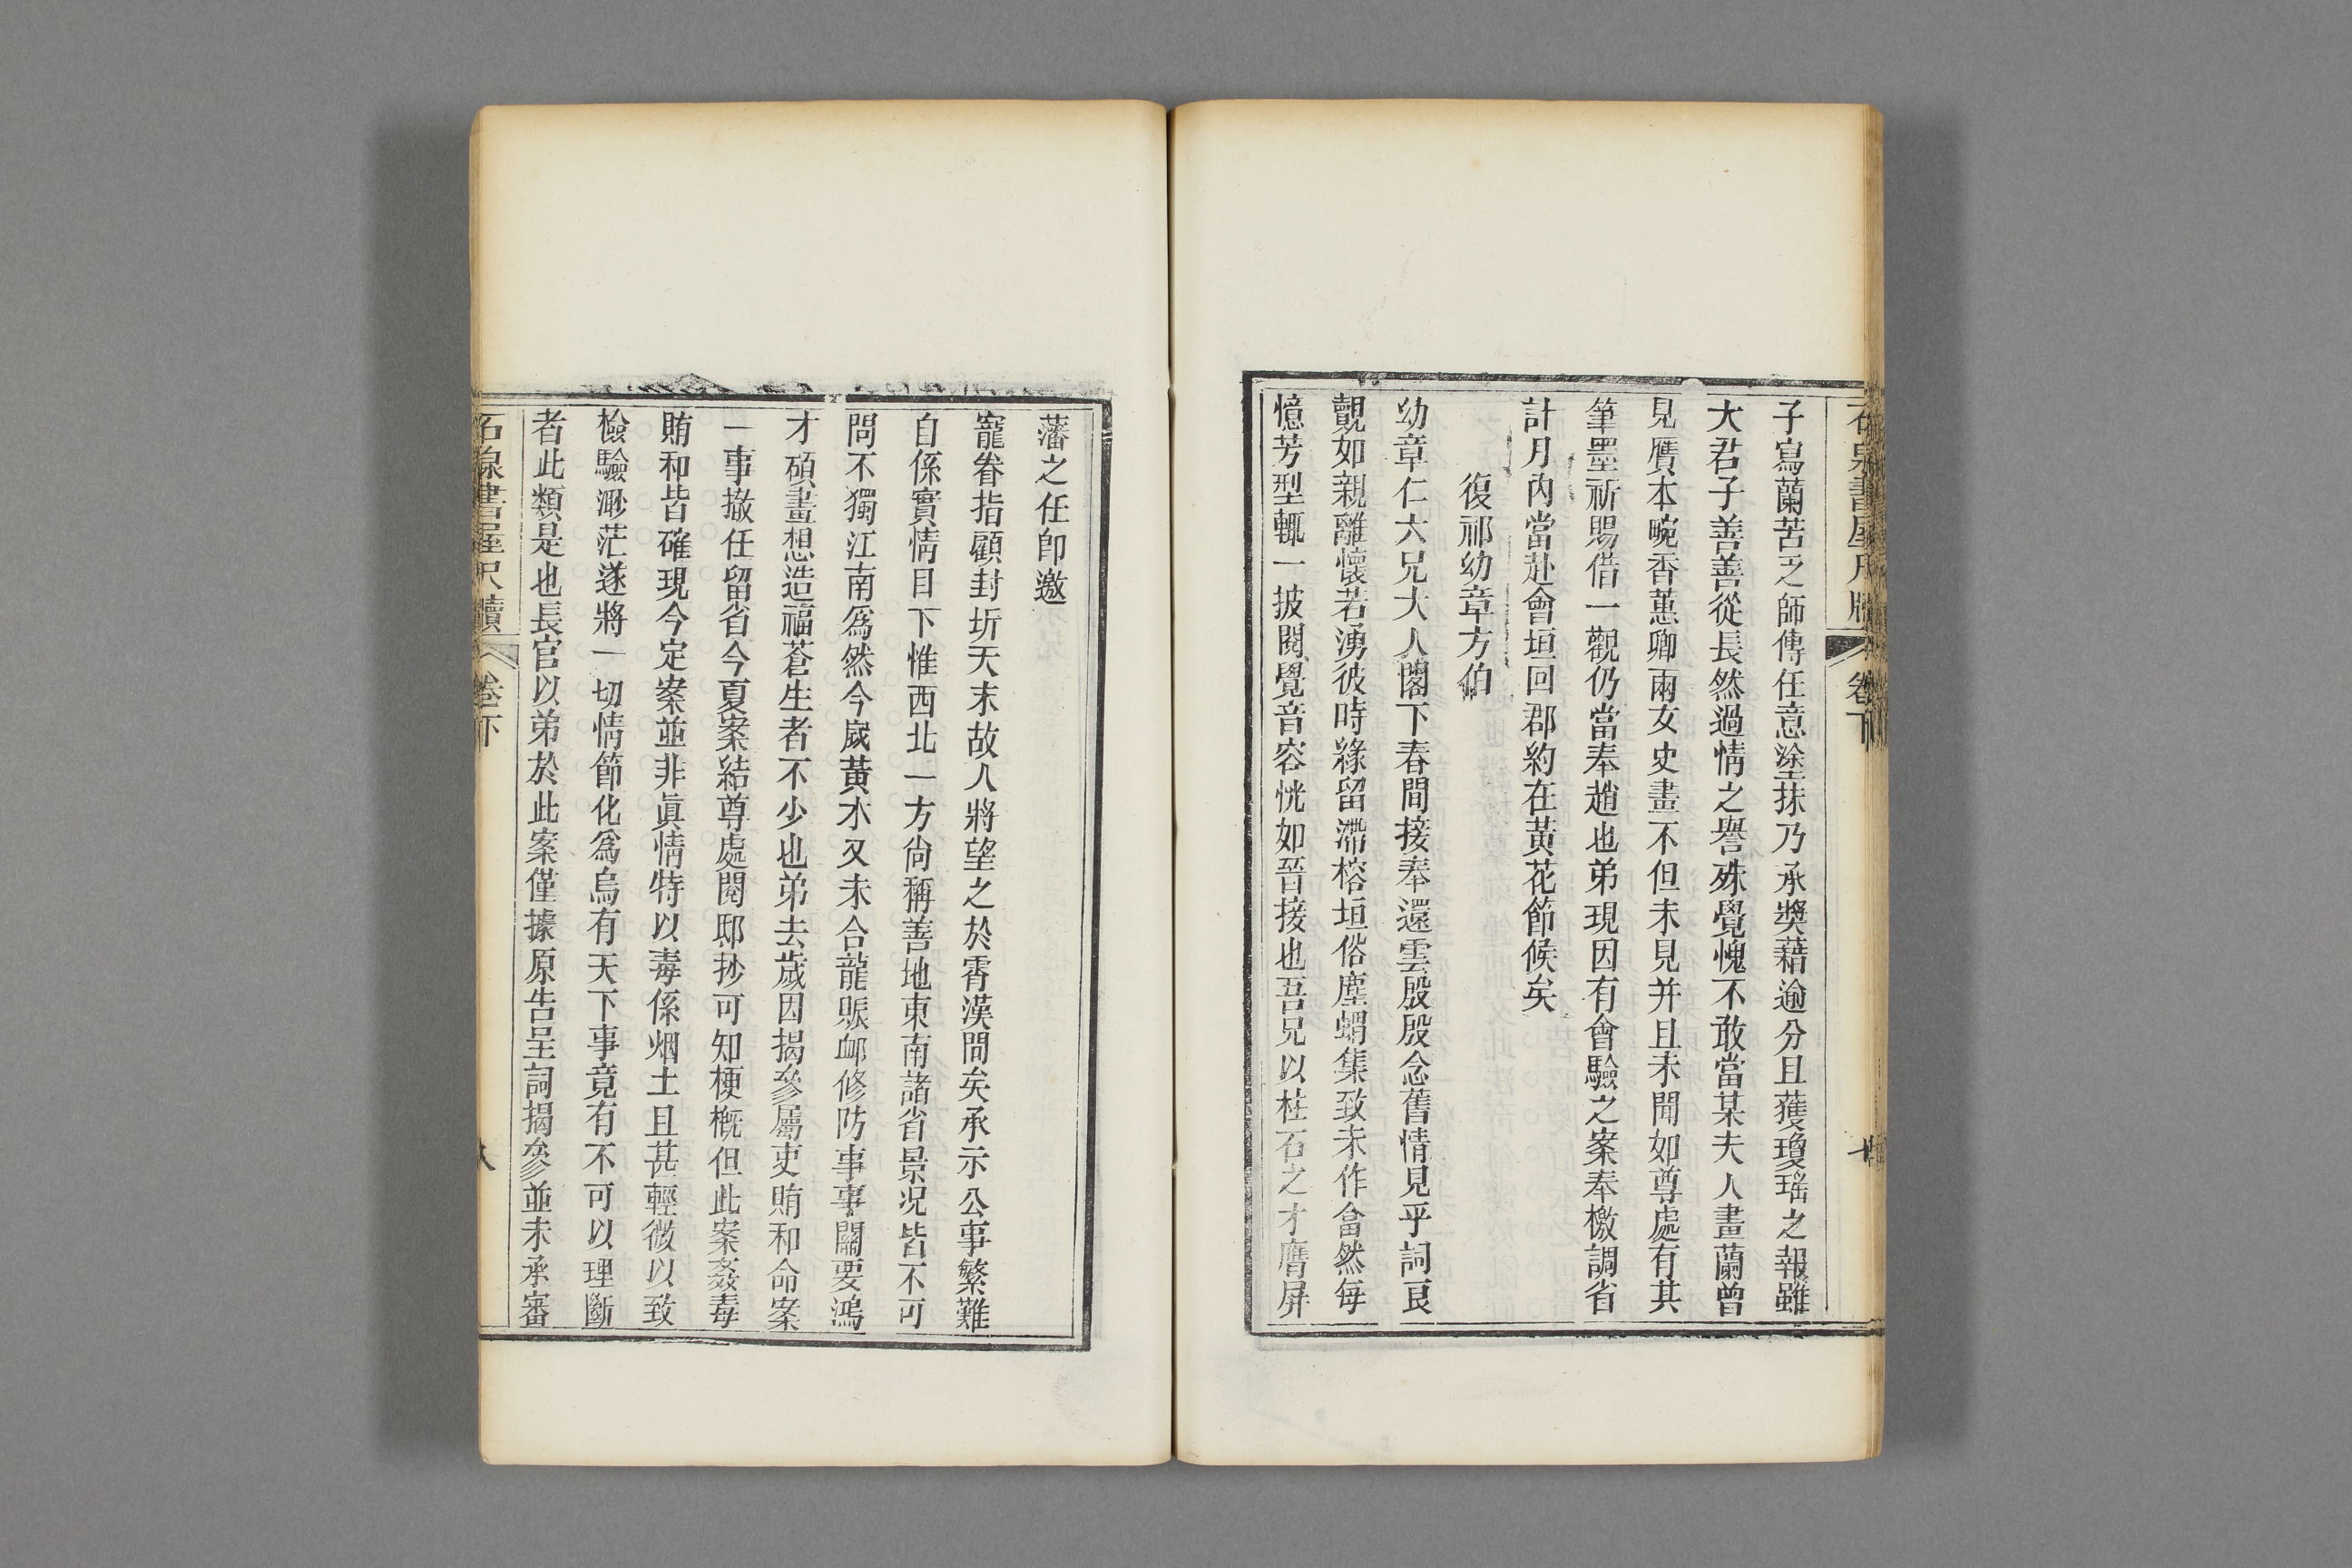 石泉書屋尺牘 卷下 七
子寫蘭苦乏師傳任意塗抹乃承獎藉逾分且獲瓊瑤之報雖
大君子善善從長然過情之譽殊覺愧不敢當某夫人畫蘭曾
見贋本畹香蕙卿兩女史畫不但未見并且未聞如尊處有其
筆墨祈賜借一觀仍當奉趙也弟現因有會驗之案奉檄調省
計月內當赴會垣回郡約在黃花節候矣
復祁幼章方伯
幼章仁六兄大人閣下春間接奉還雲殷殷念舊情見乎詞良
覿如親離懷若湧彼時緣留滯榕垣俗塵蝟集致未作畣然每
憶芳型輒一披閱覺音容恍如晉接也吾兄以柱石之才膺屏
藩之任卽邀
寵眷指顧封圻天末故人將望之於霄漢間矣承示公事繁難
自係實情目下惟西北一方尙稱善地東南諸省景况皆不可
問不獨江南爲然今歲黃水又未合龍賑卹修防事事關要鴻
才碩畫想造福蒼生者不少也弟去歲因揭參屬吏賄和命案
一事撤任留省今夏案結尊處閱邸抄可知梗概但此案姦毒
賄和皆確現今定案並非眞情特以毒係烟土且甚輕微以致
檢驗渺茫遂將一切情節化爲烏有天下事竟有不可以理斷
者此類是也長官以弟於此案僅據原告呈詞揭參並未承審
石泉書屋尺牘 卷下 八